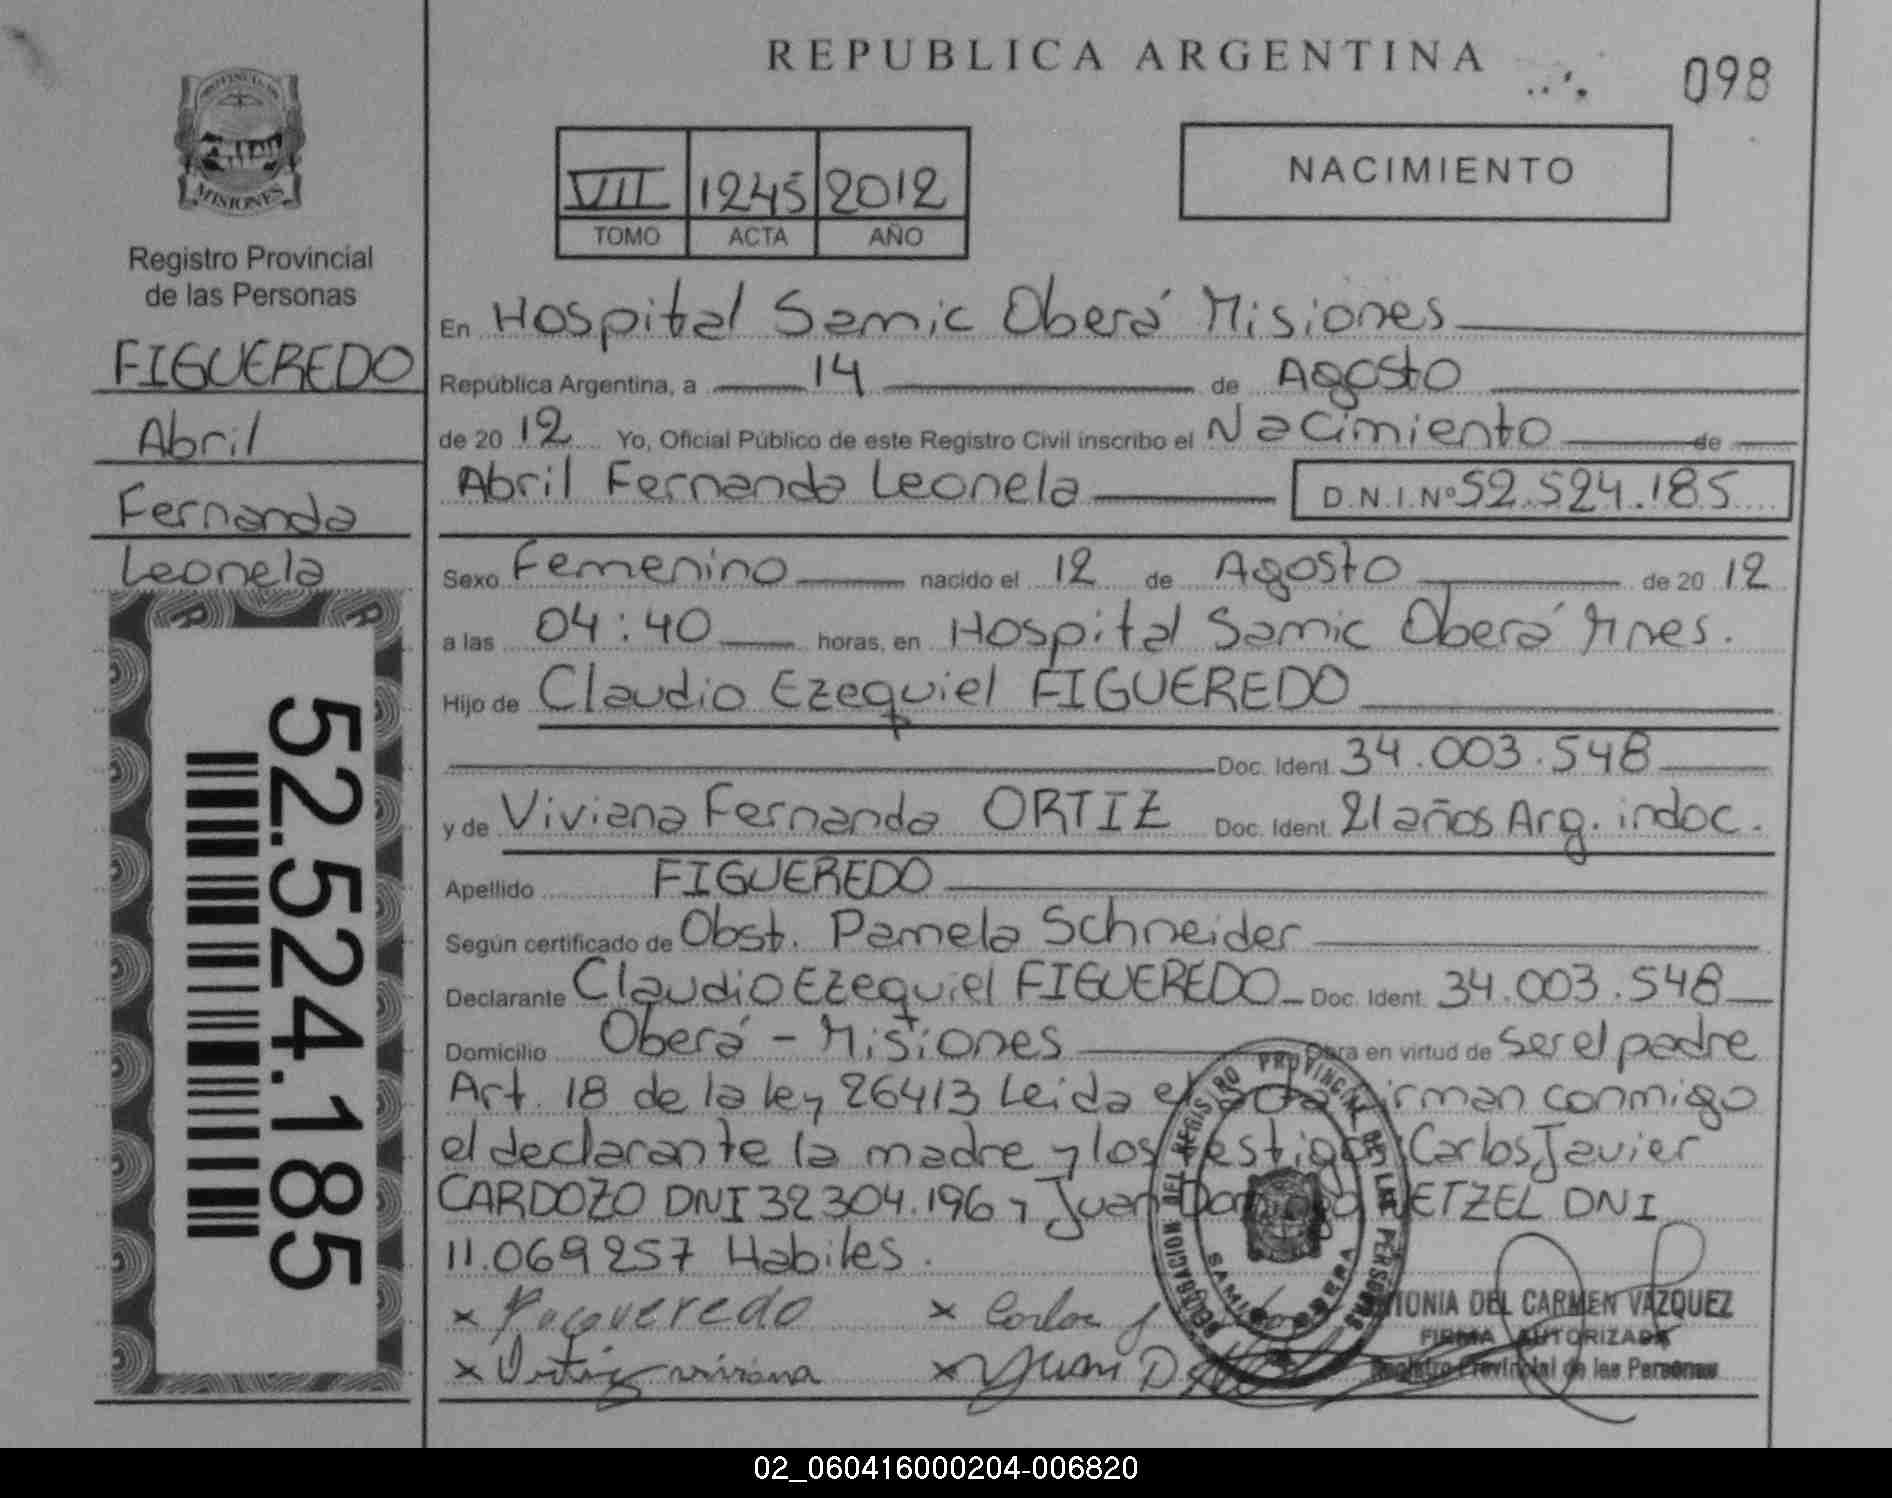 REPUBLICA ARGENTINA
098
PROVINCIA DE
MISIONES
Registro Provincial
de las Personas
FIGUEREDO
Abril
Fernanda
Leonela
52.524.185
VII 1245 2012
TOMO ACTA AÑO
NACIMIENTO
En Hospital Samic Oberá Misiones
República Argentina, a 14 de Agosto
de 20 12 Yo, Oficial Público de este Registro Civil inscribo el Nacimiento de
Abril Fernanda Leonela D.N.I.Nº 52.524.185
Sexo Femenino nacido el 12 de Agosto de 20 12
a las 04:40 horas, en Hospital Samic Oberá Mnes.
Hijo de Claudio Ezequiel FIGUEREDO
Doc. Ident. 34.003.548
y de Viviana Fernanda ORTIZ Doc. Ident. 21 años Arg. indoc.
Apellido FIGUEREDO
Según certificado de Obst. Pamela Schneider
Declarante Claudio Ezequiel FIGUEREDO Doc. Ident. 34.003.548
Domicilio Oberá - Misiones Obra en virtud de ser el padre
Art. 18 de la ley 26413 Leida el acta firman conmigo
el declarante la madre y los testigos Carlos Javier
CARDOZO DNI 32304.196 y Juan Domingo DNI
11.069257 Habiles.
x Figueredo x Carlos J
x Ortiz viviana x Juan D
DELEGACION DEL REGISTRO PROVINCIAL DE LAS PERSONAS
SAMIC OBERA
ANTONIA DEL CARMEN VAZQUEZ
FIRMA AUTORIZADA
Registro Provincial de las Personas
02_060416000204-006820